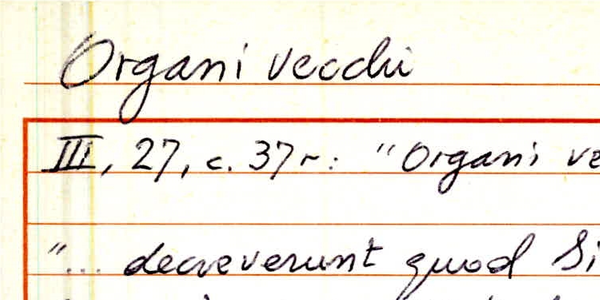 Organi vecchi
III, 27, c. 37r: "Organi ve
"... decreverunt quod Si